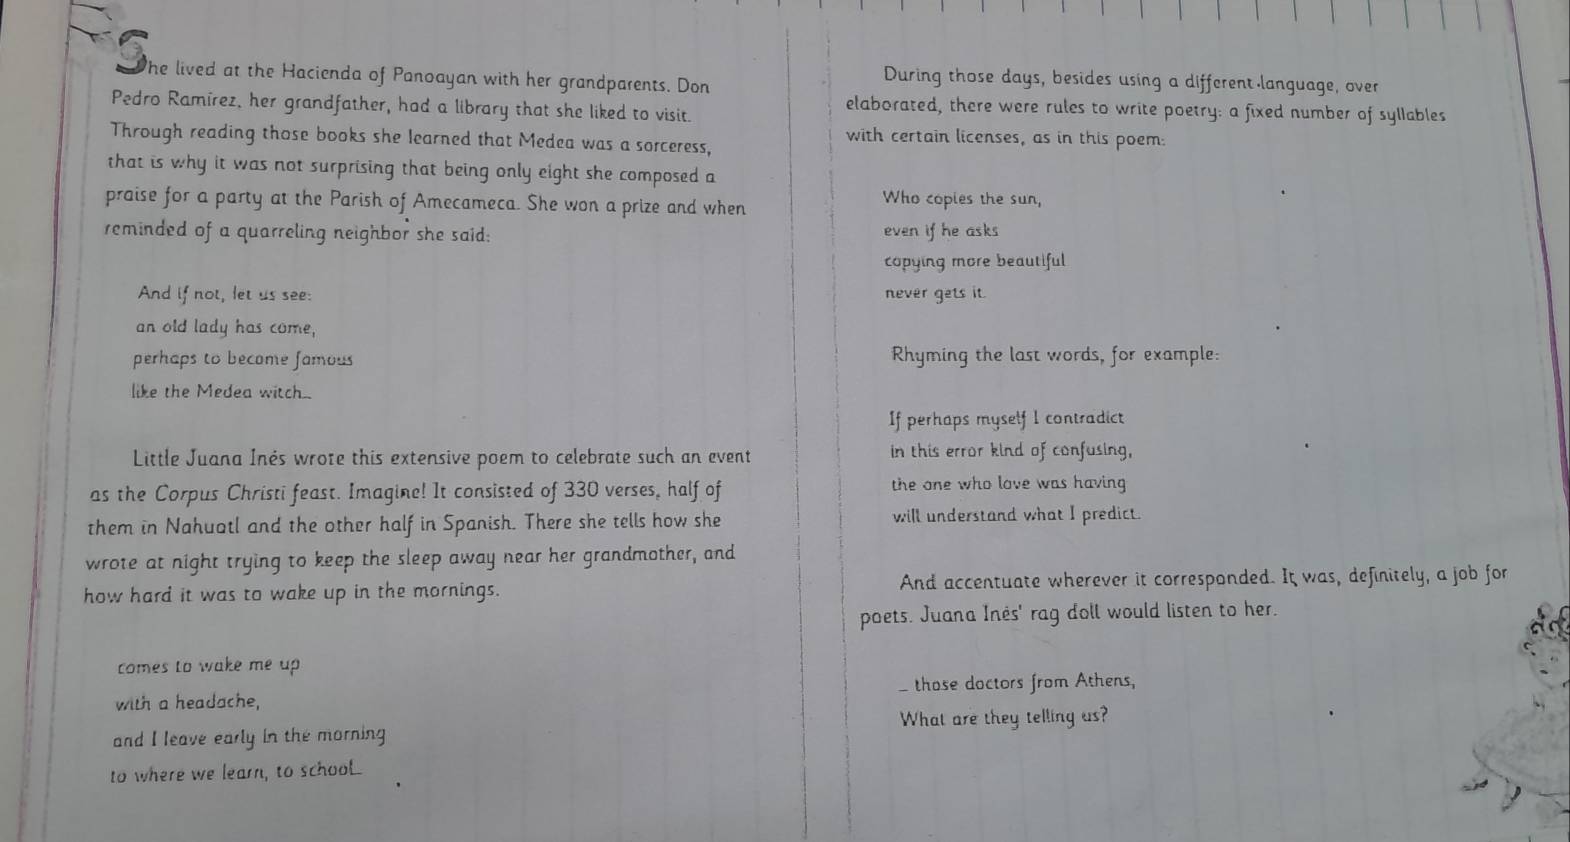 She lived at the Hacienda of Panoayan with her grandparents. Don
Pedro Ramírez, her grandfather, had a library that she liked to visit.
Through reading those books she learned that Medea was a sorceress,
that is why it was not surprising that being only eight she composed a
praise for a party at the Parish of Amecameca. She won a prize and when
reminded of a quarreling neighbor she said:
And if not, let us see:
an old lady has come,
perhaps to become famous
like the Medea witch...
Little Juana Inés wrote this extensive poem to celebrate such an event
as the Corpus Christi feast. Imagine! It consisted of 330 verses, half of
them in Nahuatl and the other half in Spanish. There she tells how she
wrote at night trying to keep the sleep away near her grandmother, and
how hard it was to wake up in the mornings.
comes to wake me up
with a headache,
and I leave early in the morning
to where we learn, to school...
During those days, besides using a different language, over
elaborated, there were rules to write poetry: a fixed number of syllables
with certain licenses, as in this poem:
Who copies the sun,
even if he asks
copying more beautiful
never gets it.
Rhyming the last words, for example:
If perhaps myself I contradict
in this error kind of confusing,
the one who love was having
will understand what I predict.
And accentuate wherever it corresponded. It was, definitely, a job for
poets. Juana Inés' rag doll would listen to her.
... those doctors from Athens,
What are they telling us?